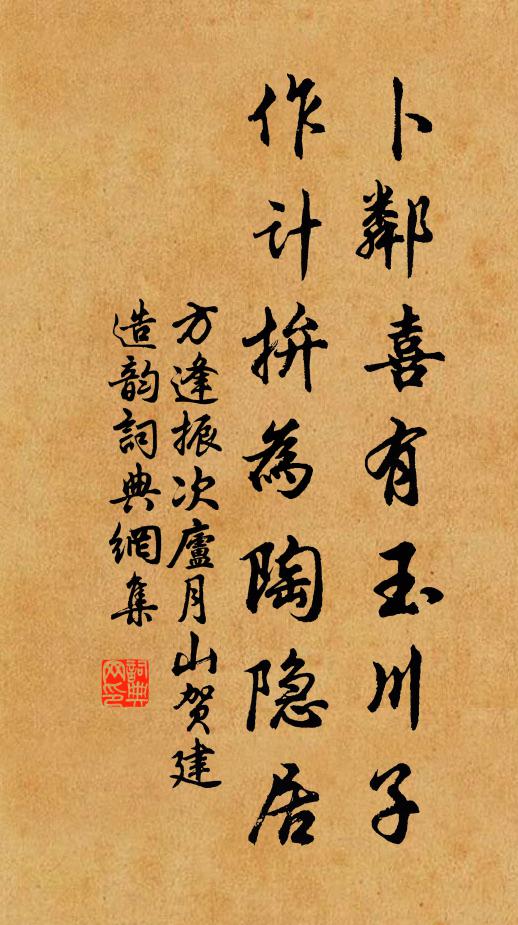 卜鄰喜有玉川子
作计拚為陶隐居
方逢振次廬月山贺建
造韵詞典網集
詞典网印